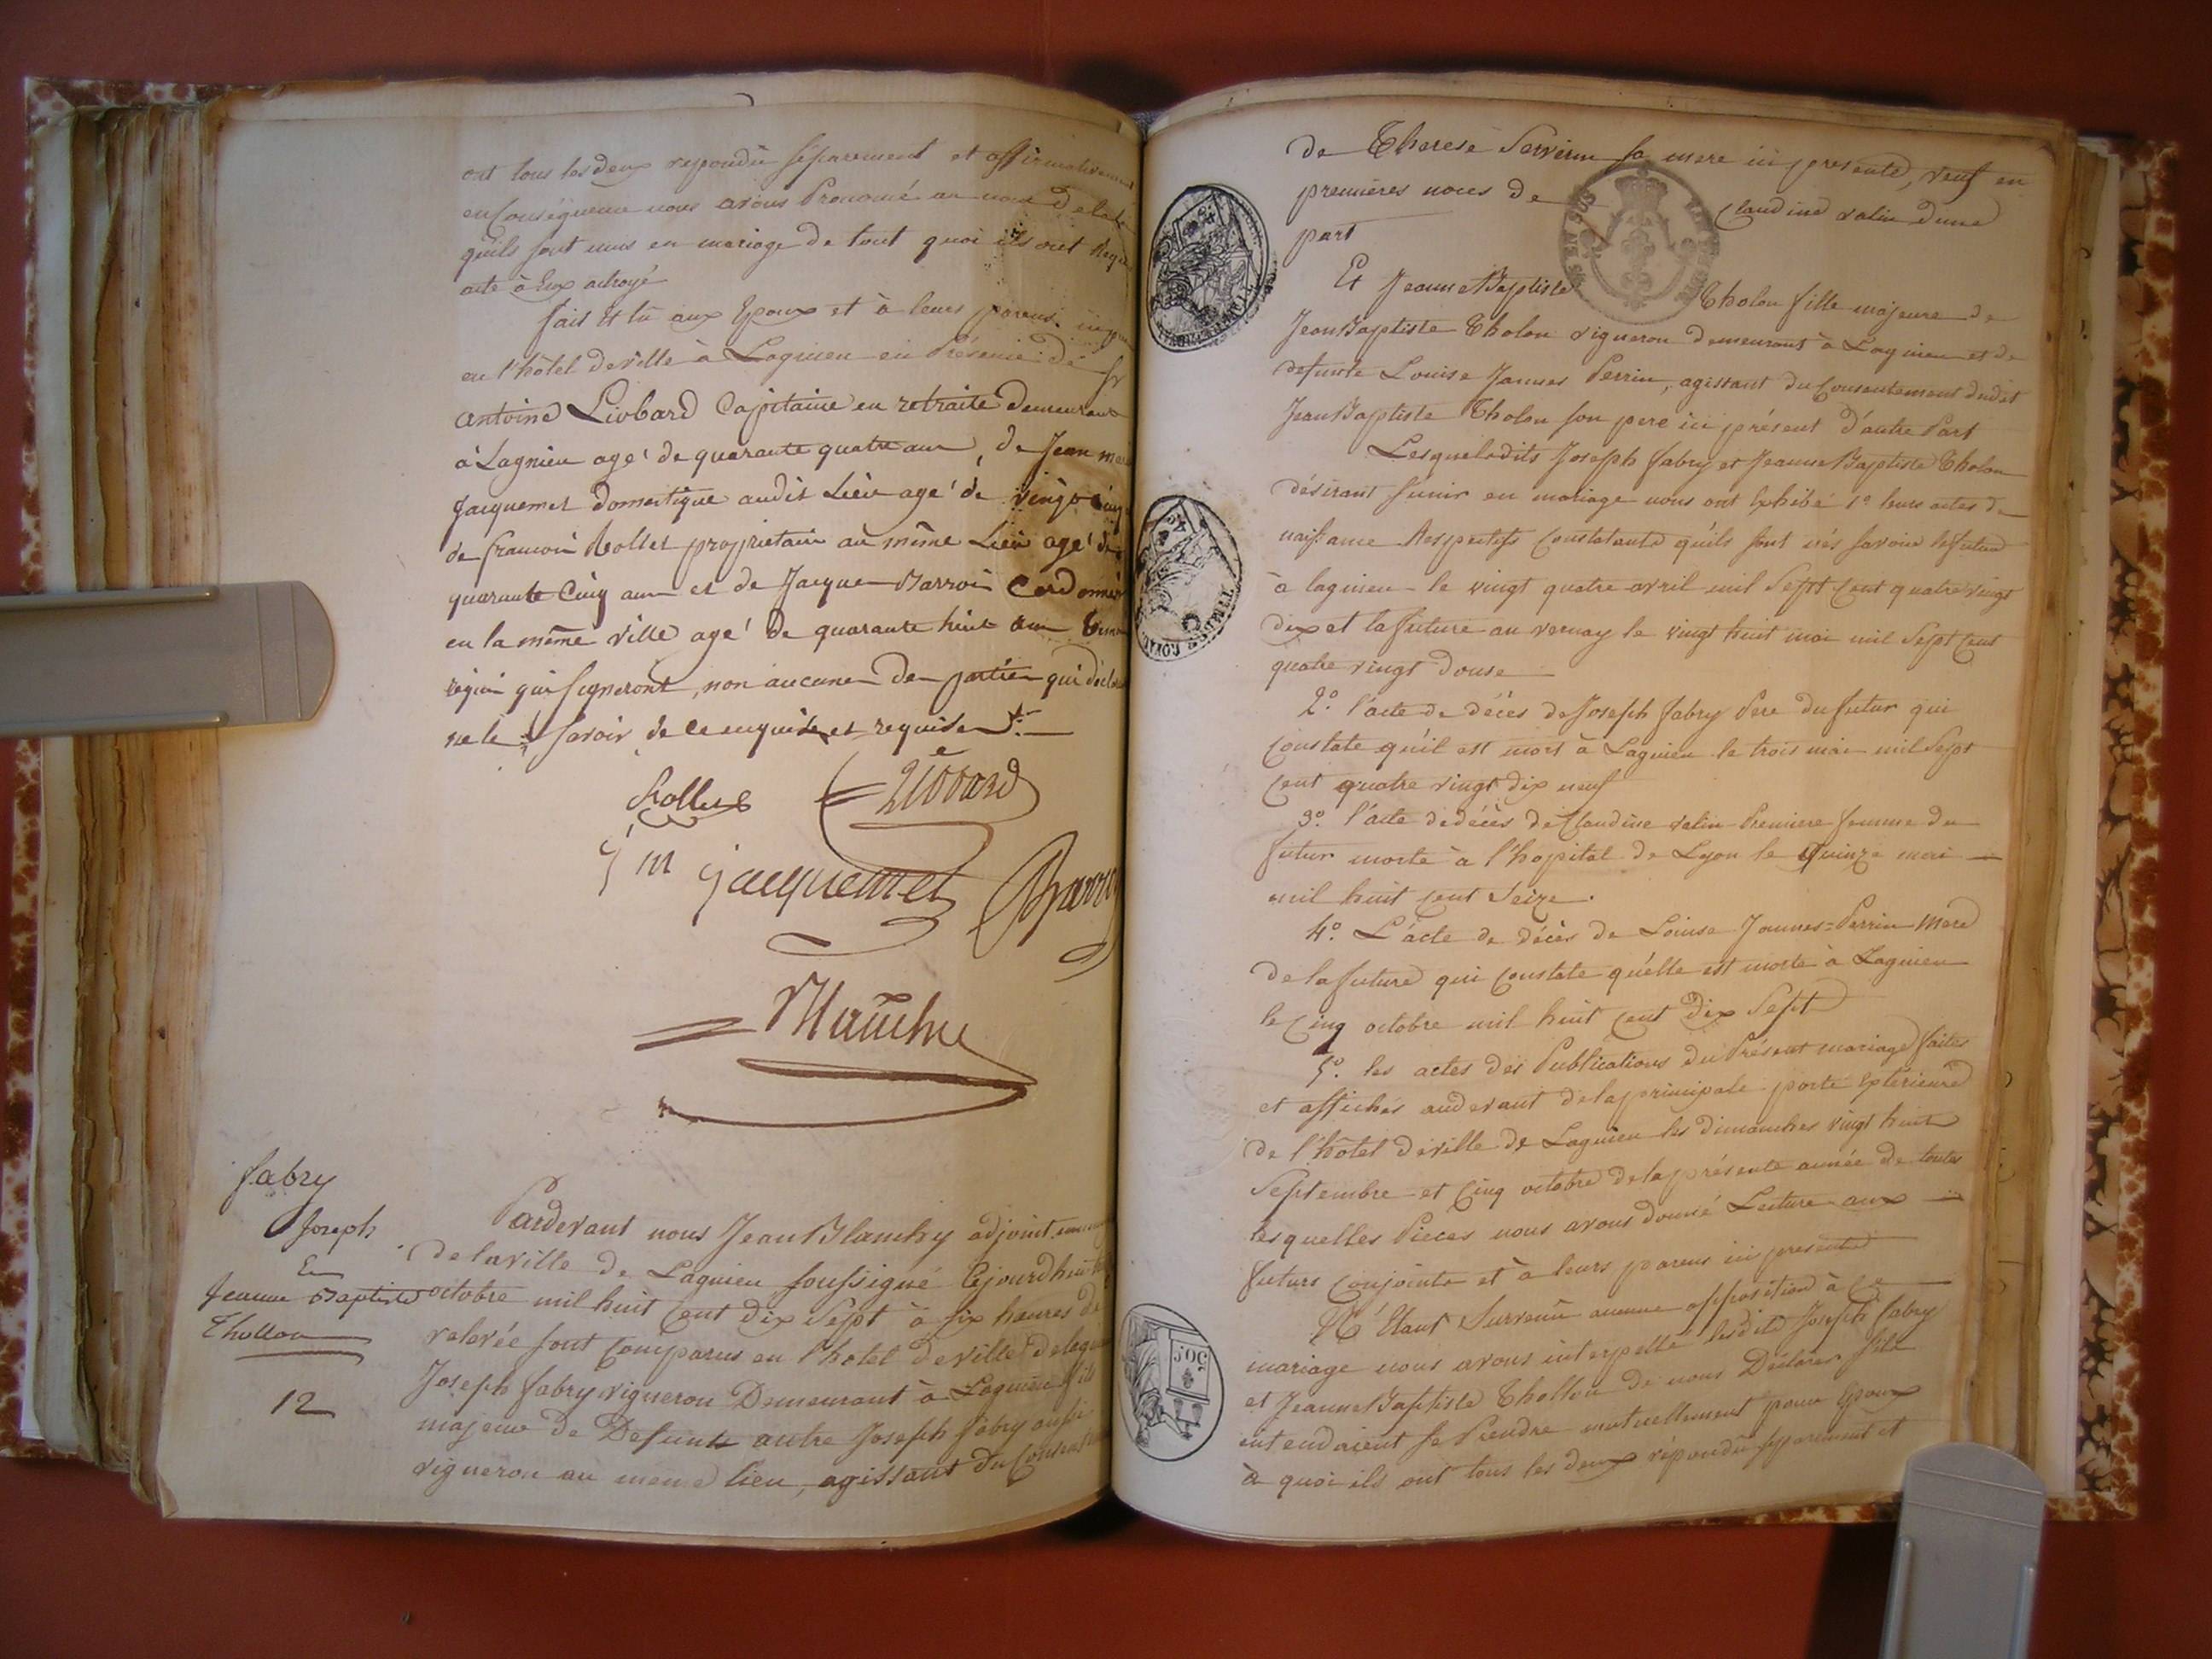 ont tous les deux repondu séparement et affirmativement
en Conséquence nous avons Prononcé au nom de la loi
qu'ils sont unis en mariage de tout quoi ils ont Requis
acte à Eux octroyé
fait et lu aux Epoux et à leurs parens
en l'hôtel de ville à Lagnieu en Présence de Sr
antoine Liobard Capitaine en retraite demeurant
à Lagnieu agé de quarante quatre ans, de Jean
Jacquemet domestique audit Lieu agé de vingt cinq
de francois Rollet proprietaire au même Lieu agé de
quarante Cinq ans et de Jacque Barroi Cordonnier
en la même ville agé de quarante huit ans
requis qui signeront, non aucune des parties qui
ne le savoir de ce enquises et requises
Rollet Liobard
j m jacquemet
Blanchy
fabry
Joseph
Et
Jeanne Baptiste
Thollon
12
Pardevant nous Jean Blanchy adjoint
de la ville de Lagnieu soussigné Cejourdhuit
octobre mil huit Cent Dix Sept à six heures de
relevée sont Comparus en l'hotel de ville de
Joseph fabry vigneron Demeurant à Lagnieu fils
majeur de Defunt autre Joseph fabry aussi
vigneron au meme lieu, agissant du
de Therese Servien sa mere ici presente, veuf en
premières noces de Claudine valin dune
part
Et Jeanne Baptiste Tholon fille majeure de
Jean Baptiste Tholon vigneron demeurant à Lagnieu et de
defunte Louise Jannes Perrin, agissant du Consentement dudit
Jean Baptiste Tholon son pere ici présent d'autre Part
Lesquels dits Joseph fabry et Jeanne Baptiste Tholon
désirant s'unir en mariage nous ont Exhibé 1º leurs actes de
naissance Respectifs Constatants qu'ils sont nés savoir le futur
à lagnieu le vingt quatre avril mil Sept Cent quatre vingt
dix et la future au vernay le vingt huit mai mil Sept Cent
quatre vingt douse
2º. l'acte de décès de Joseph fabry Pere du futur qui
Constate qu'il est mort à Lagnieu le trois mai mil Sept
Cent quatre vingt dix neuf
3º. l'acte de décès de Claudine valin Premiere femme du
futur morte à l'hopital de Lyon le Quinze mai
mil huit Cent Seize.
4º. L'acte de décès de Louise Jannes=Perrin Mere
de la future qui Constate qu'elle est morte à Lagnieu
le Cinq octobre mil huit Cent Dix Sept
5º. les actes des Publications du Présent mariage faites
et affichés audevant de la principale porte Extérieure
de l'hôtel de ville de Lagnieu les dimanches vingt huit
Septembre et Cinq octobre de la présente année de toutes
lesquelles Pieces nous avons donné Lecture aux
futurs Conjoints et à leurs parens ici presents
N'Etant Survenu aucune opposition à Ce
mariage nous avons interpellé lesdits Joseph fabry
et Jeanne Baptiste Thollon de nous Déclarer s'ils
entendaient se Prendre mutuellement pour Epoux
à quoi ils ont tous les deux répondu separement et
50C